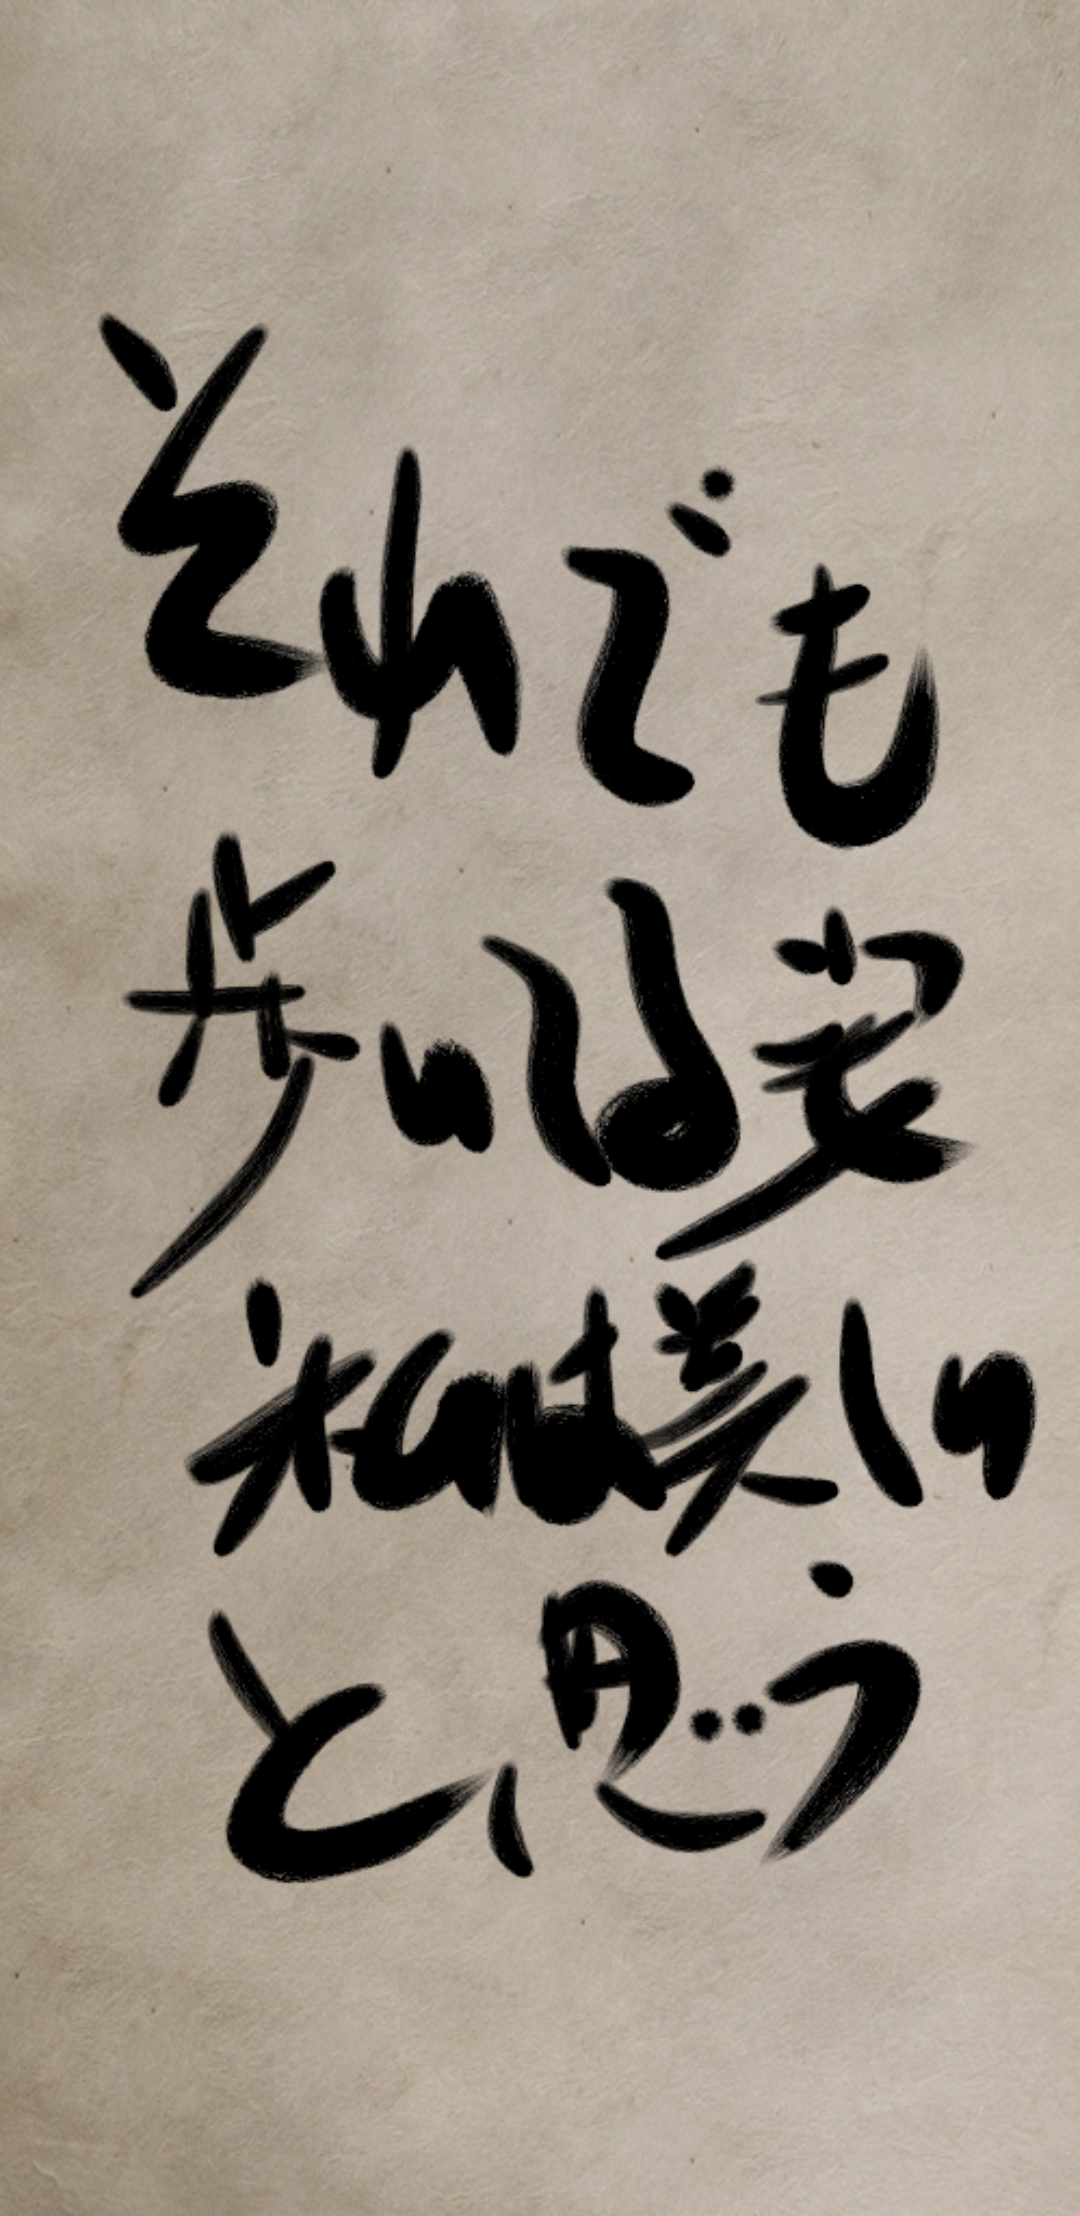 それでも
歩いてる姿
私は美しい
と思う